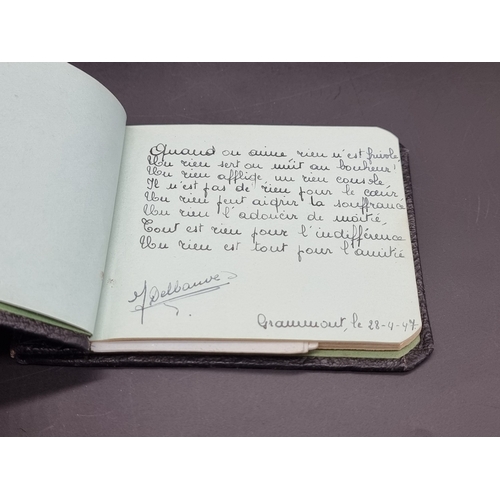 Quand on aime rien n'est frivole,
Un rien sert ou nuit au bonheur:
Un rien afflige, un rien console
Il n'est pas de rien pour le cœur
Un rien peut aigrir la souffrance
Un rien l'adoucir de moitié,
Tout est rien pour l'indifférence
Un rien est tout pour l'amitié
Grammont, le 28-4-47